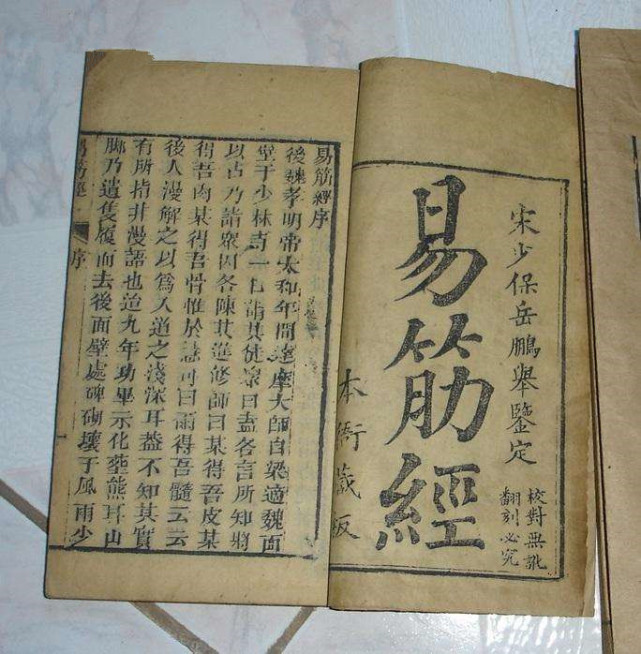 宋少保岳鵬舉鑑定
校對無訛
翻刻必究
易筋經
本衙藏板
易筋經序
後魏孝明帝太和年間達摩大師自梁適魏面
壁于少林寺一日謂其徒衆曰盍各言所知將
以占乃詣衆因各陳其進修師曰某得吾皮某
得吾肉某得吾骨惟於慧可曰爾得吾髓云云
後人漫解之以爲入道之淺深耳蓋不知其實
有所指非漫語也迨九年功畢示化塟熊耳山
脚乃遺隻履而去後面壁處碑砌壞于風雨少
易筋經 序